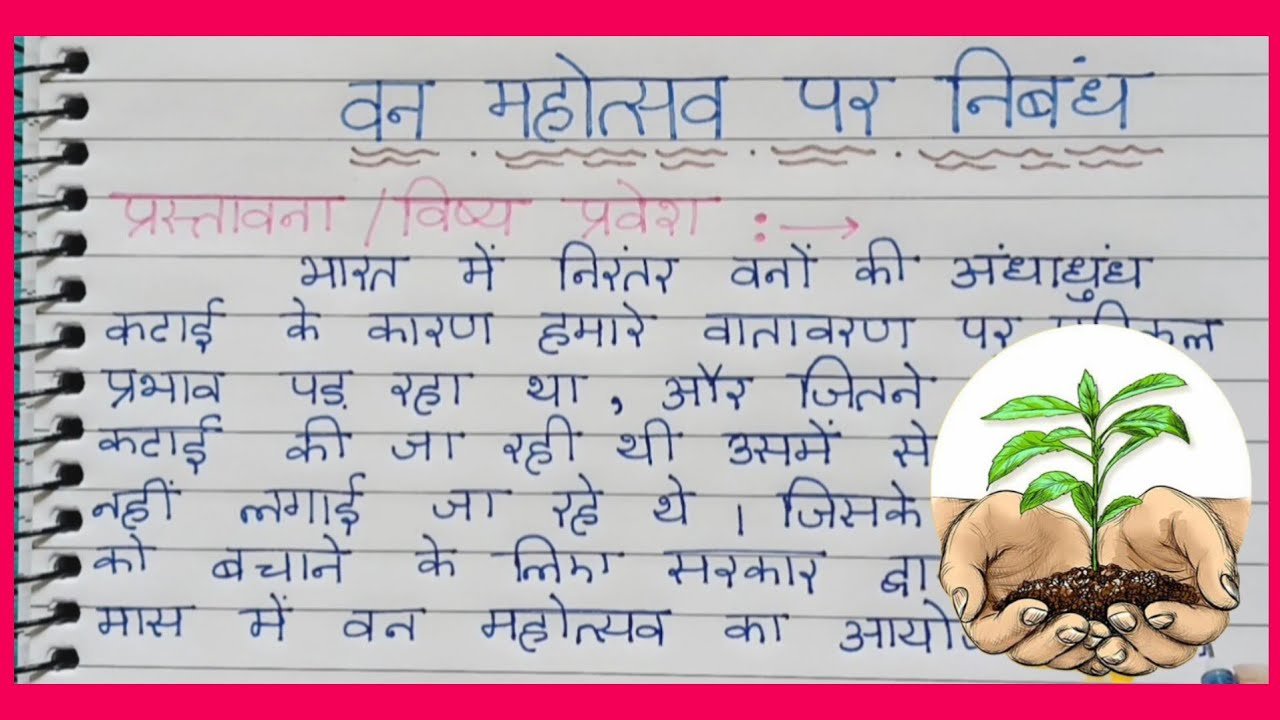 वन महोत्सव पर निबंध
प्रस्तावना / विष्य प्रवेश :→
भारत में निरंतर वनों की अंधाधुंध
कटाई के कारण हमारे वातावरण पर
प्रभाव पड़ रहा था, और जितने
कटाई की जा रही थी उसमें से
नहीं लगाई जा रहे थे । जिसके
को बचाने के लिए सरकार
मास में वन महोत्सव का